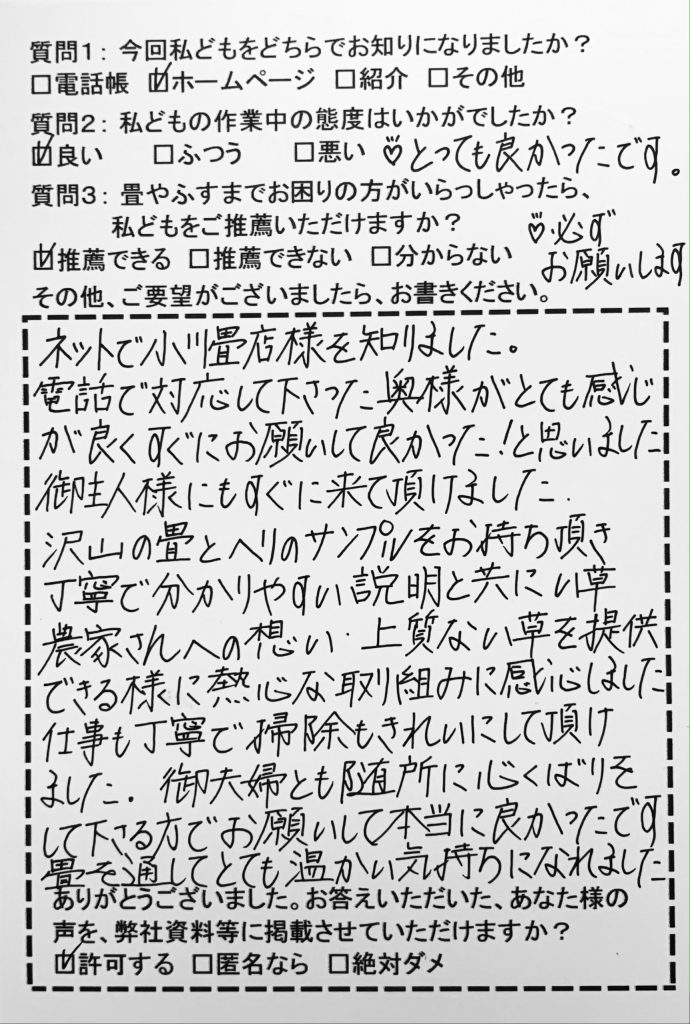 質問1：今回私どもをどちらでお知りになりましたか？
□電話帳 ☑ホームページ □紹介 □その他
質問2：私どもの作業中の態度はいかがでしたか？
☑良い □ふつう □悪い ♡とっても良かったです。
質問3：畳やふすまでお困りの方がいらっしゃったら、
私どもをご推薦いただけますか？
♡必ず
☑推薦できる □推薦できない □分からない
お願いします
その他、ご要望がございましたら、お書きください。
ネットで小川畳店様を知りました。
電話で対応して下さった奥様がとても感じ
が良くすぐにお願いして良かった！と思いました
御主人様にもすぐに来て頂けました.
沢山の畳とヘリのサンプルをお持ち頂き
丁寧で分かりやすい説明と共にい草
農家さんへの想い・上質ない草を提供
できる様に熱心な取り組みに感心しました
仕事も丁寧で掃除もきれいにして頂け
ました. 御夫婦とも随所に心くばりを
して下さる方でお願いして本当に良かったです
畳を通してとても温かい気持ちになれました
ありがとうございました。お答えいただいた、あなた様の
声を、弊社資料等に掲載させていただけますか？
☑許可する □匿名なら □絶対ダメ